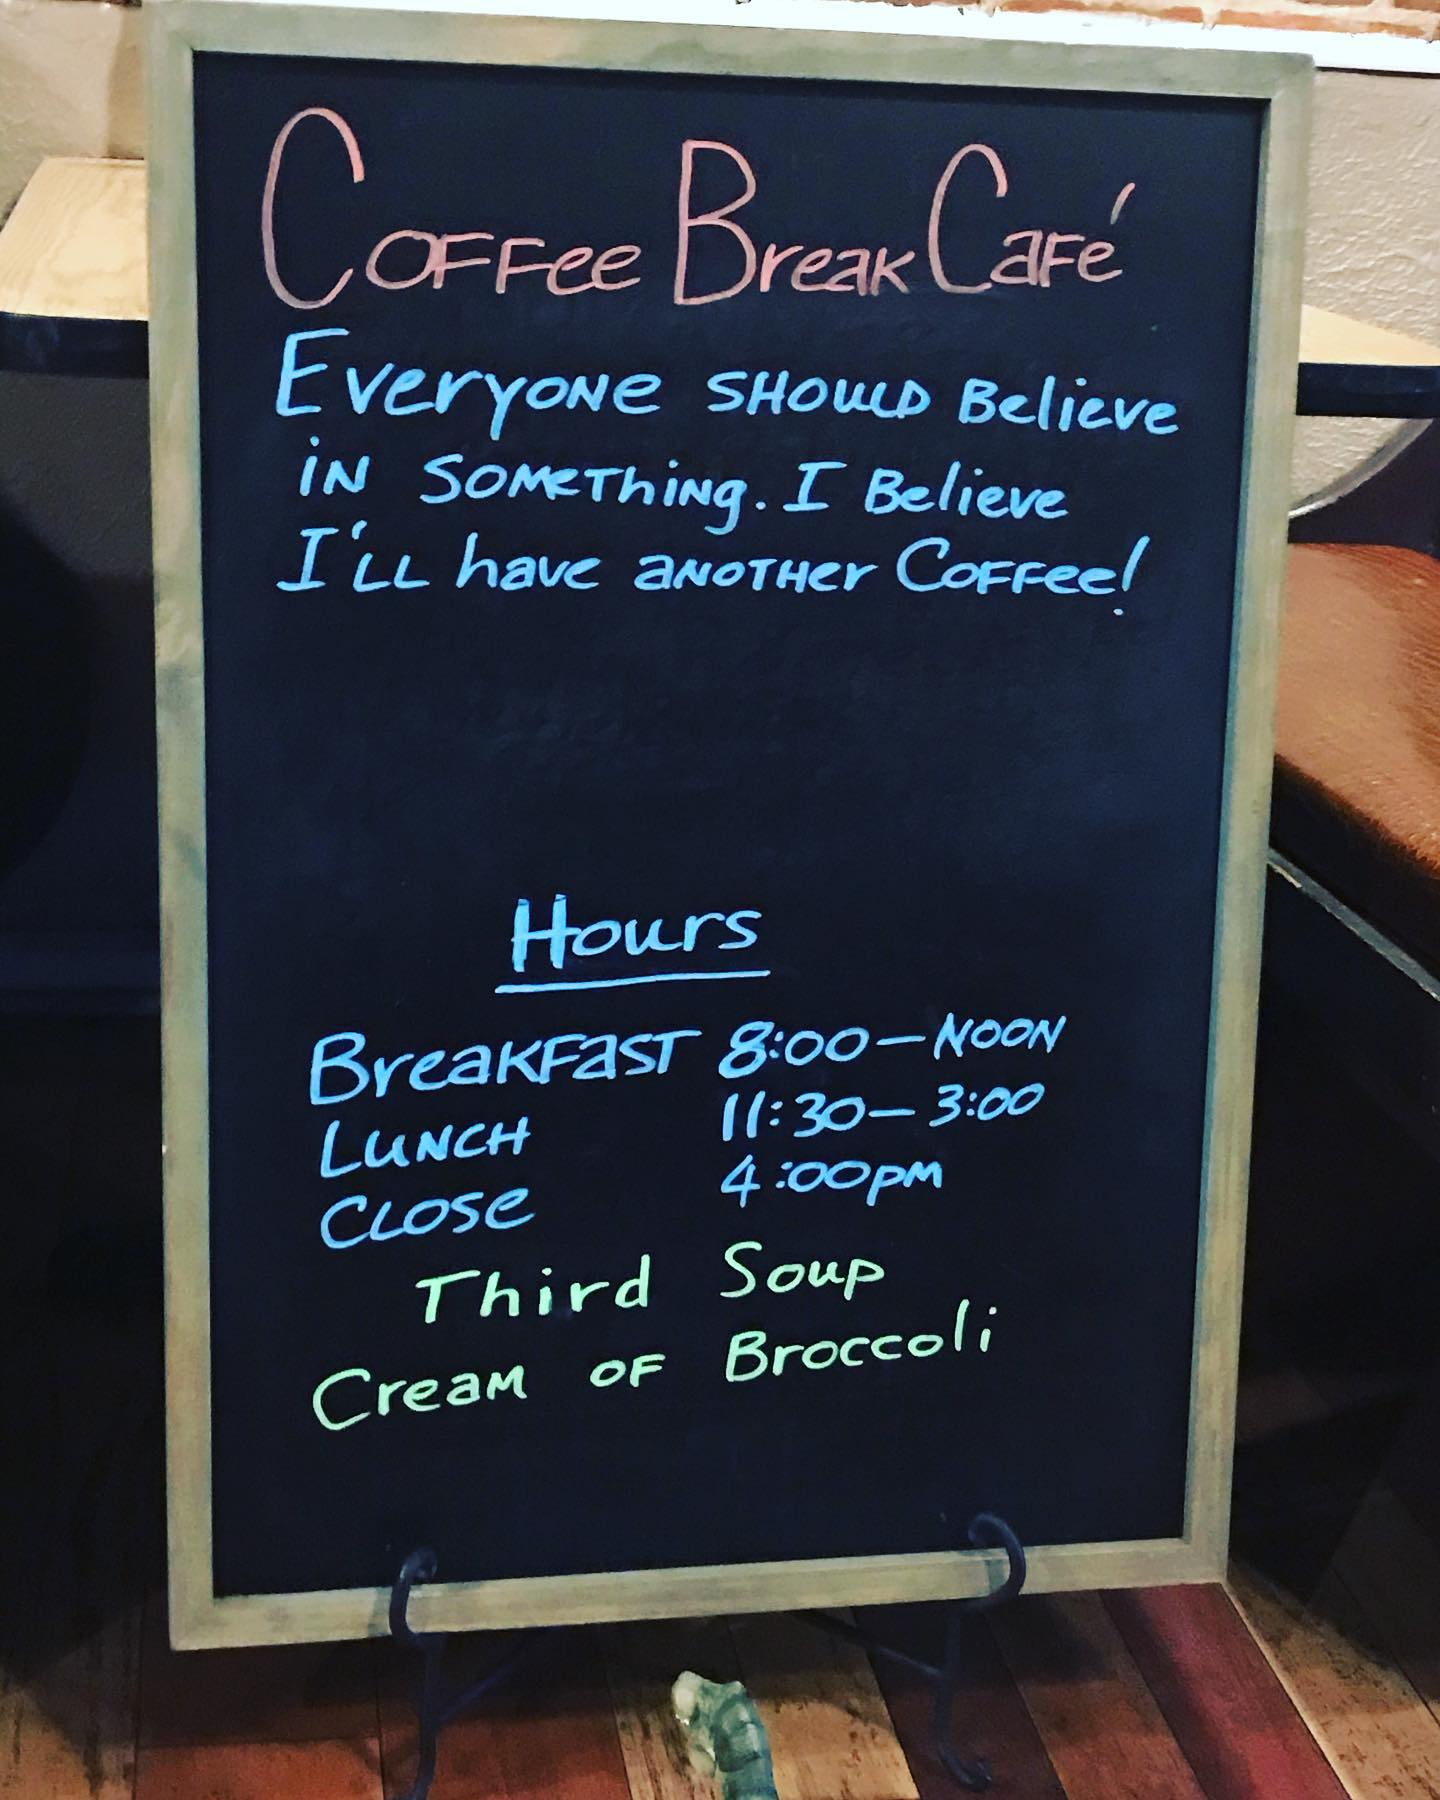 Coffee Break Café
Everyone should believe
in something. I believe
I'll have another Coffee!
Hours
Breakfast 8:00 – Noon
Lunch 11:30 – 3:00
Close 4:00pm
Third Soup
Cream of Broccoli